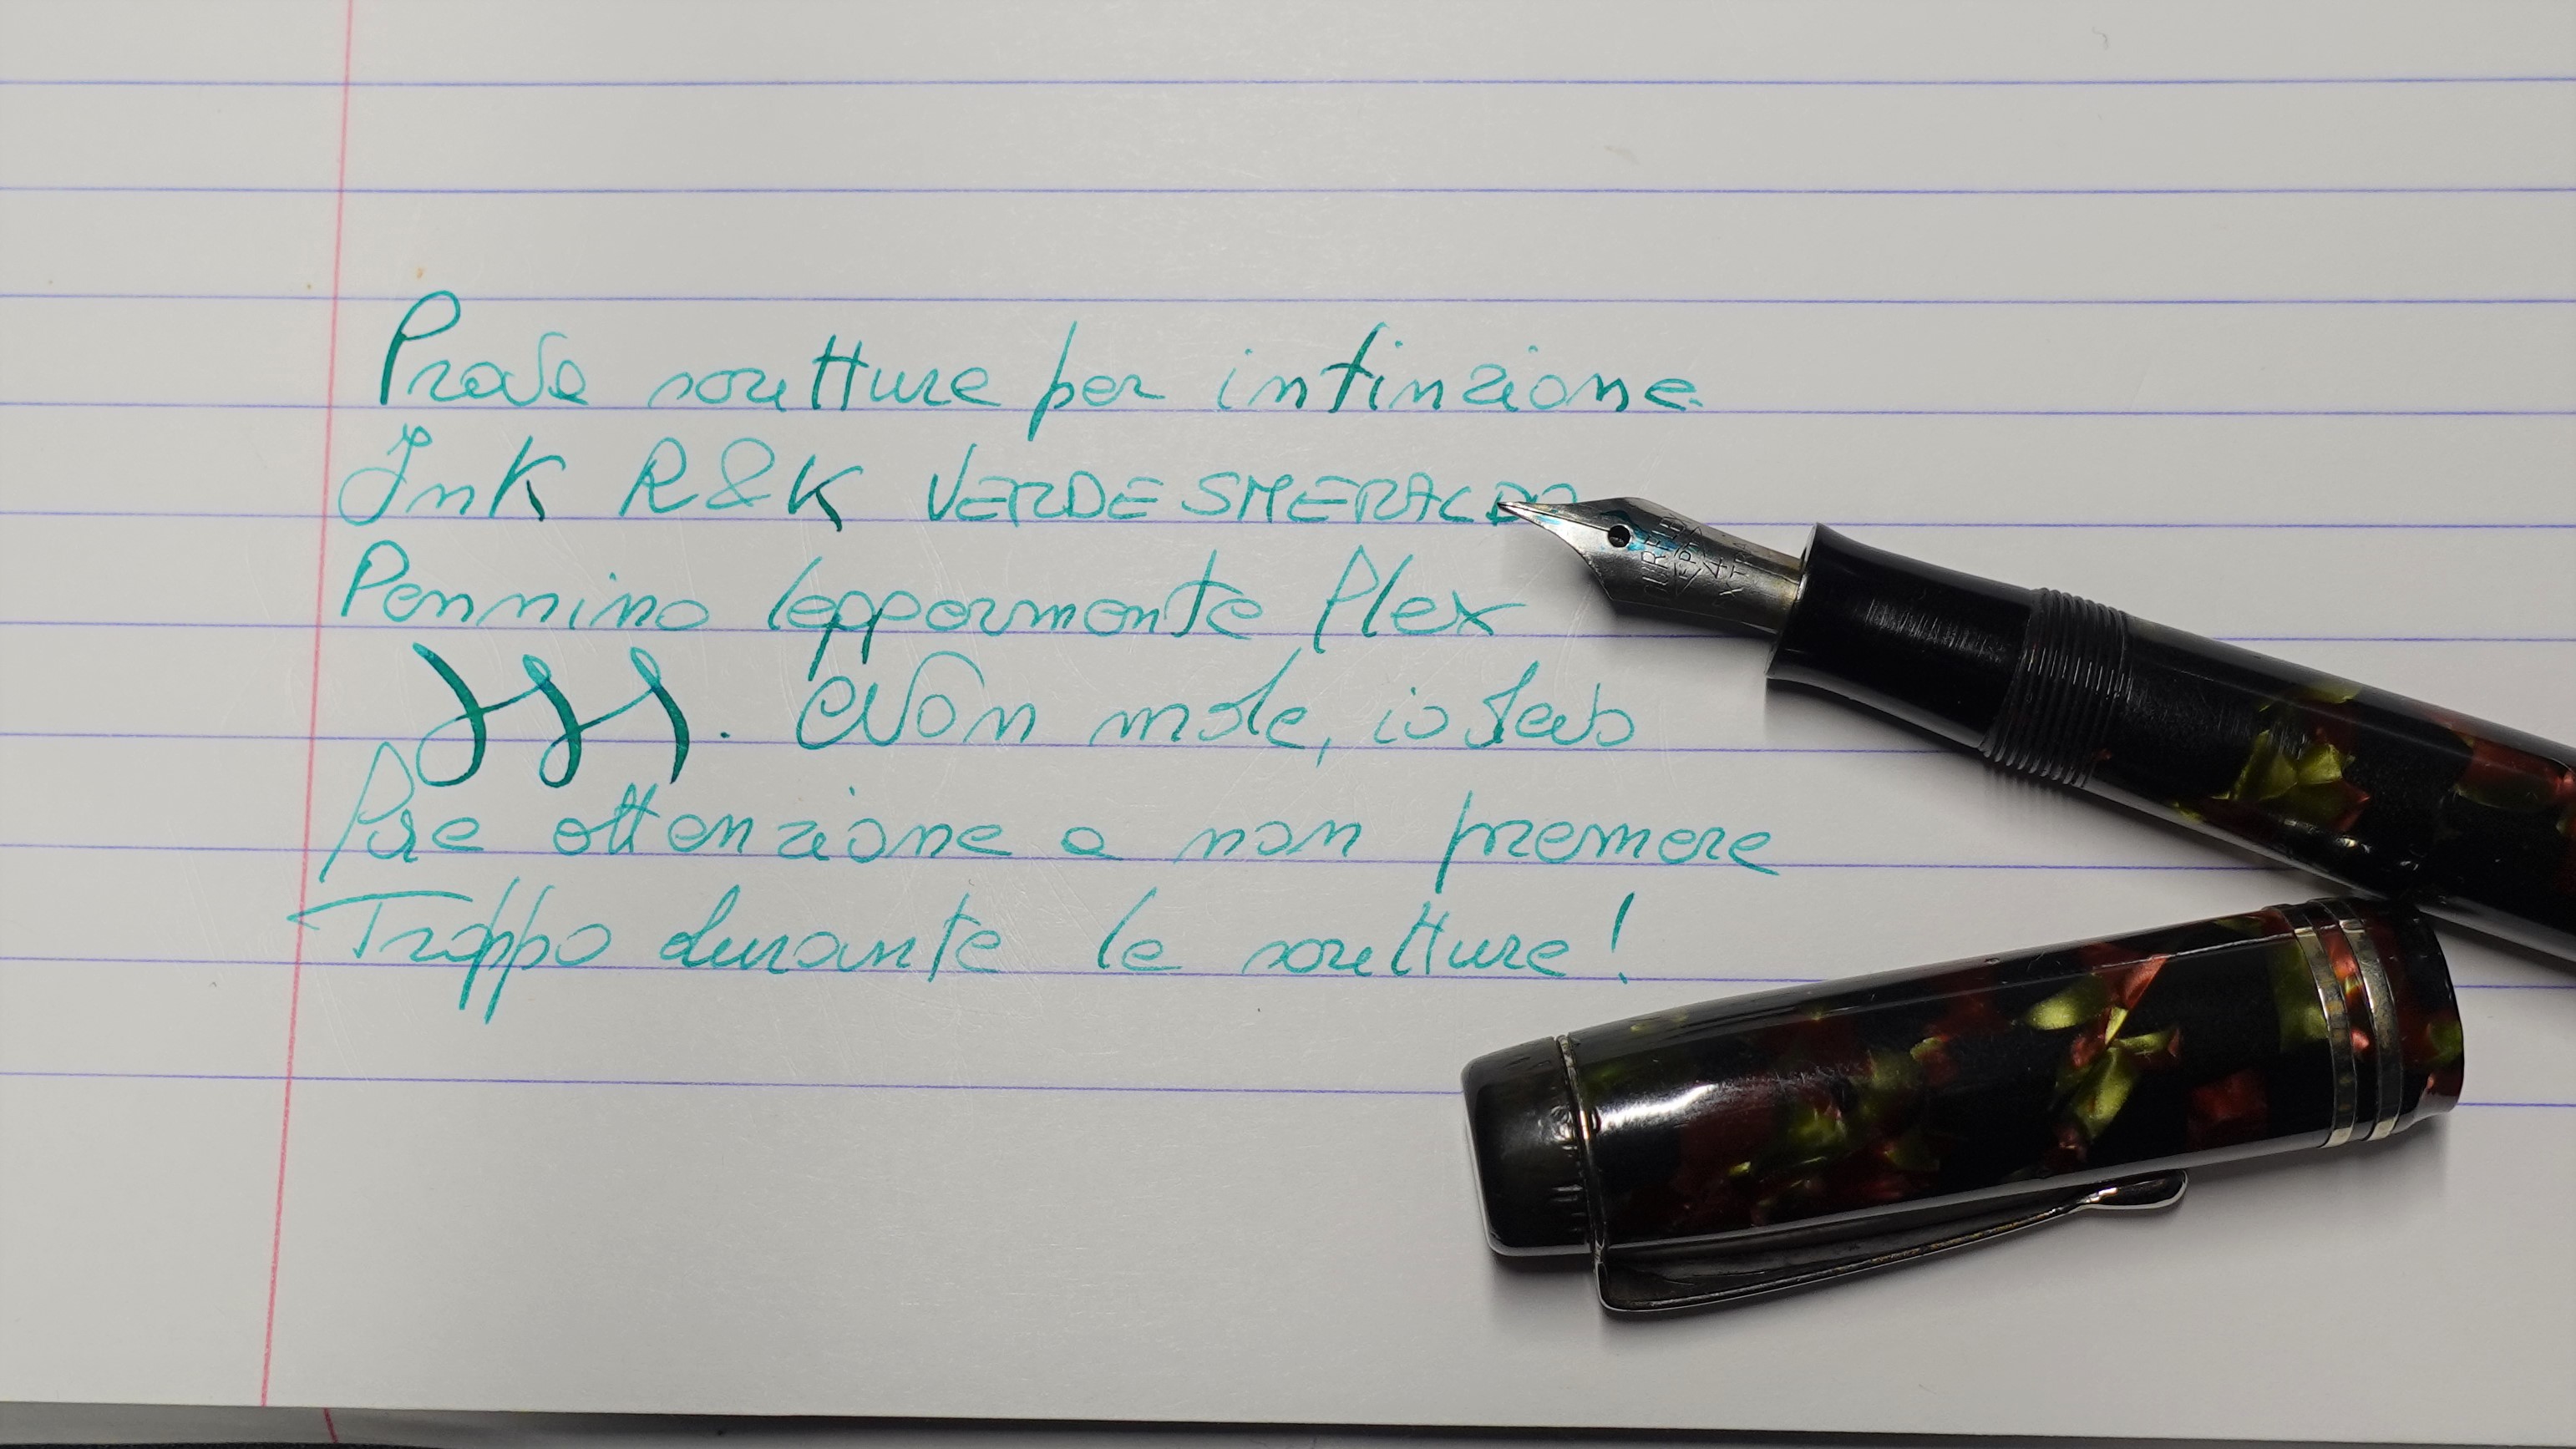 Prova scrittura per intinzione.
Ink R&K VERDE SMERALDO
Pennino leggermente flex
. Non male, io devo
fare attenzione a non premere
Troppo durante la scrittura!